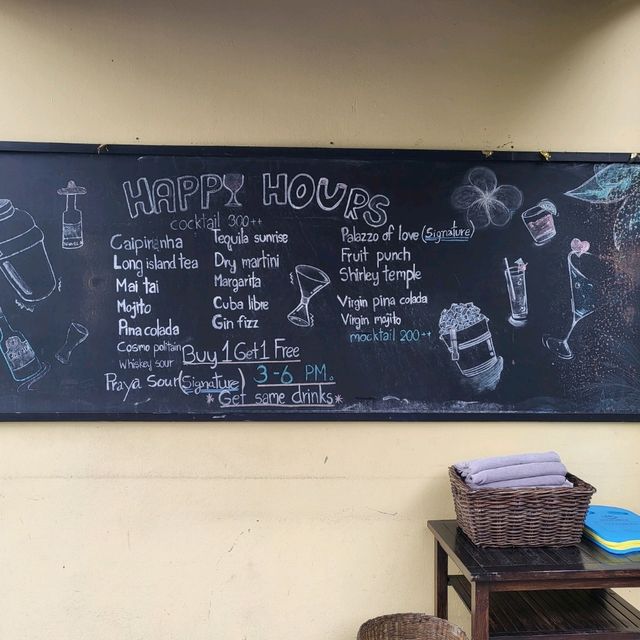 HAPPY HOURS
cocktail 300++
Caipirinha
Long island tea
Mai tai
Mojito
Pina colada
Cosmo politain
Whiskey sour
Praya Sour (Signature)
Tequila sunrise
Dry martini
Margarita
Cuba libre
Gin fizz
Palazzo of love (Signature)
Fruit punch
Shirley temple
Virgin pina colada
Virgin mojito
mocktail 200++
Buy 1 Get 1 Free
3-6 PM.
*Get same drinks*